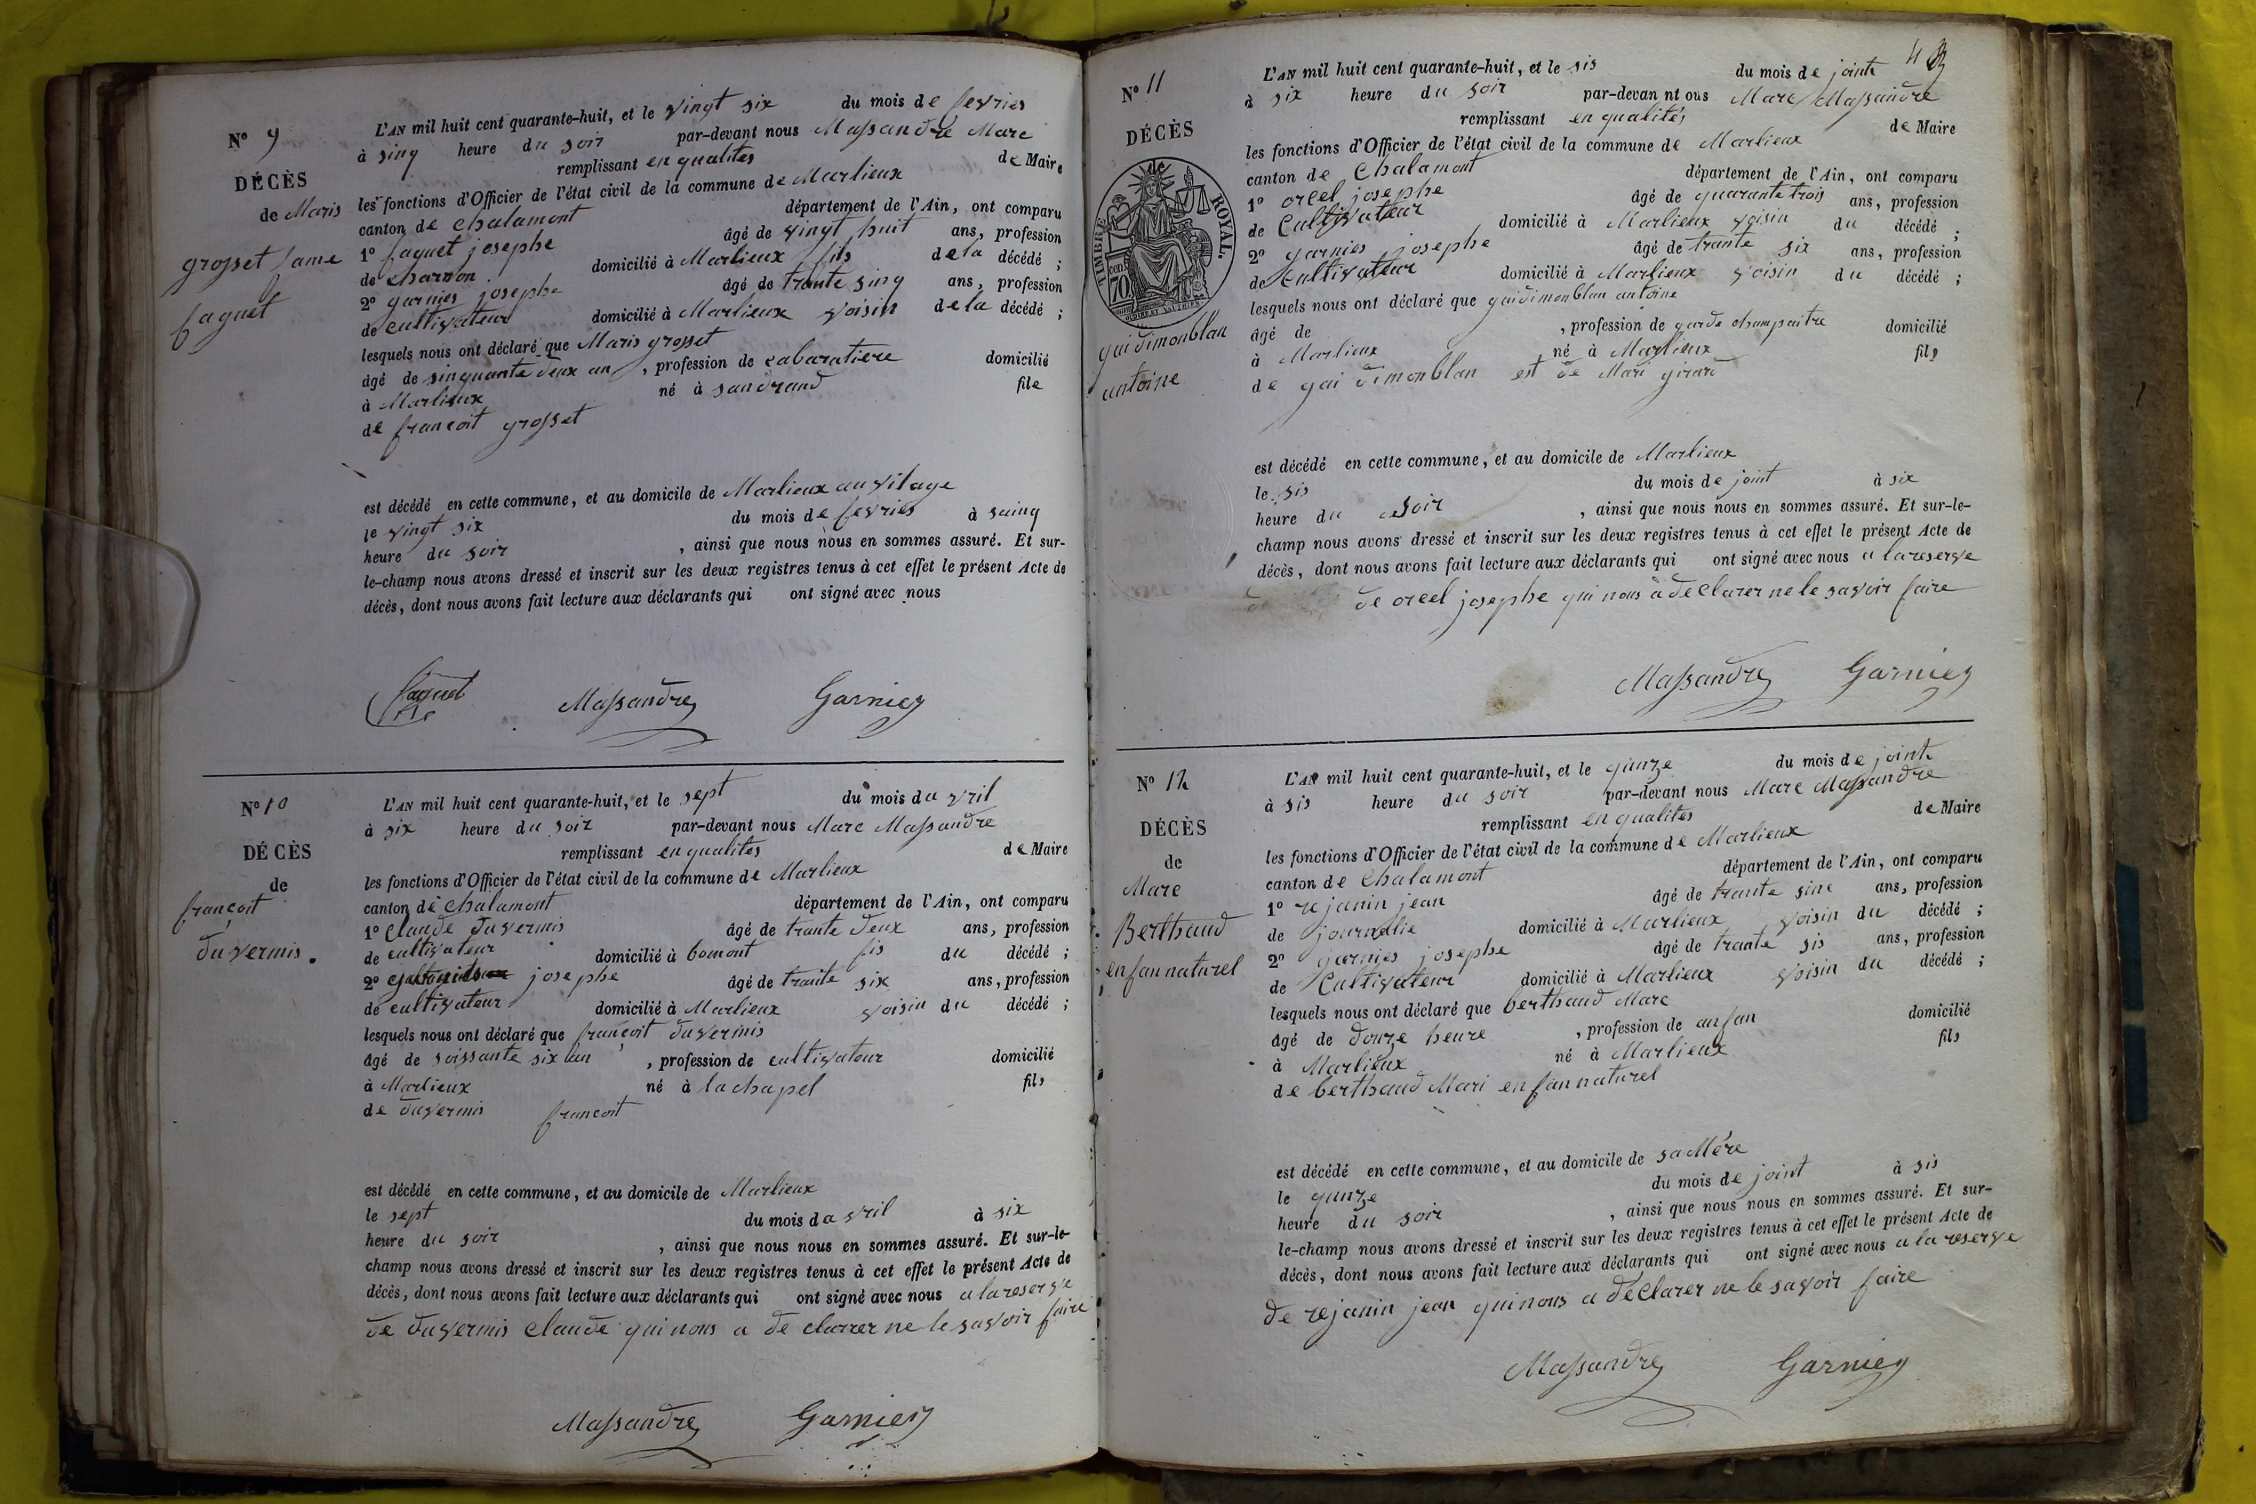 N° 9
DÉCÈS
de Maris
grosset fame
faguet
L'AN mil huit cent quarante-huit, et le vingt six du mois de fevries
à sinq heure du soir par-devant nous Massandre Marc
remplissant en qualites de Maire
les fonctions d'Officier de l'état civil de la commune de Marlieux
canton de chalamont département de l'Ain, ont comparu
1° faguet josephe âgé de vingt huit ans, profession
de charron domicilié à Marlieux fils de la décédé ;
2° garnies josephe âgé de trante sinq ans, profession
de cultivateur domicilié à Marlieux voisin de la décédé ;
lesquels nous ont déclaré que Maris grosset
âgé de sinquante deux an, profession de cabaratiere domicilié
à Marlieux né à sandrand file
de francoit grosset
est décédé en cette commune, et au domicile de Marlieux au vilage
le vingt six du mois de fevries à sainq
heure du soir, ainsi que nous nous en sommes assuré. Et sur-
le-champ nous avons dressé et inscrit sur les deux registres tenus à cet effet le présent Acte de
décès, dont nous avons fait lecture aux déclarants qui ont signé avec nous
faguet
Massandre Garnier
N° 10
DÉCÈS
de
françoit
duvermis.
L'AN mil huit cent quarante-huit, et le sept du mois da vril
à six heure du soir par-devant nous Marc Massandre
remplissant en qualites de Maire
les fonctions d'Officier de l'état civil de la commune de Marlieux
canton de chalamont département de l'Ain, ont comparu
1° claude duvermis âgé de trante deux ans, profession
de cultivateur domicilié à bomont fis du décédé ;
2° josephe âgé de trante six ans, profession
de cultivateur domicilié à Marlieux voisin du décédé ;
lesquels nous ont déclaré que françoit duvermis
âgé de soissante six an, profession de cultivateur domicilié
à Marlieux né à lachapel fils
de duvermis francoit
est décédé en cette commune, et au domicile de Marlieux
le sept du mois da vril à six
heure du soir, ainsi que nous nous en sommes assuré. Et sur-le-
champ nous avons dressé et inscrit sur les deux registres tenus à cet effet le présent Acte de
décès, dont nous avons fait lecture aux déclarants qui ont signé avec nous a la reserve
de duvermis claude qui nous a de clarrer ne le savoir faire
Massandre Garnier
4
N° 11
DÉCÈS
de
TIMBRE ROYAL.
70
gaidimonblan
antoine
L'AN mil huit cent quarante-huit, et le sis du mois de joint
à six heure du soir par-devan nt ous Marc Massandre
remplissant en qualités de Maire
les fonctions d'Officier de l'état civil de la commune de Marlieux
canton de chalamont département de l'Ain, ont comparu
1° orcel josephe âgé de quarante trois ans, profession
de cultivateur domicilié à Marlieux voisin du décédé ;
2° garnies josephe âgé de trante six ans, profession
de cultivateur domicilié à Marlieux voisin du décédé ;
lesquels nous ont déclaré que gaidimonblan antoine
âgé de , profession de garde champaitre domicilié
à Marlieux né à Marlieux fils
de gai dimonblan est de Mari girard
est décédé en cette commune, et au domicile de Marlieux
le sis du mois de joint à six
heure du soir, ainsi que nous nous en sommes assuré. Et sur-le-
champ nous avons dressé et inscrit sur les deux registres tenus à cet effet le présent Acte de
décès, dont nous avons fait lecture aux déclarants qui ont signé avec nous a la reserve
de orcel josephe qui nous a de clarer ne le savoir faire
Massandre Garnier
N° 12
DÉCÈS
de
Marc
Berthaud
enfan naturel
L'AN mil huit cent quarante-huit, et le qunze du mois de joint
à sis heure du soir par-devant nous Marc Massandre
remplissant en qualites de Maire
les fonctions d'Officier de l'état civil de la commune de Marlieux
canton de chalamont département de l'Ain, ont comparu
1° rejanin jean âgé de trante sinc ans, profession
de journalie domicilié à Marlieux voisin du décédé ;
2° garnies josephe âgé de trante sis ans, profession
de Cultivateur domicilié à Marlieux voisin du décédé ;
lesquels nous ont déclaré que berthaud Marc
âgé de douze heure, profession de anfan domicilié
à Marlieux né à Marlieux fils
de berthaud Mari enfan naturel
est décédé en cette commune, et au domicile de sa Mére
le qunze du mois de joint à sis
heure du soir, ainsi que nous nous en sommes assuré. Et sur-
le-champ nous avons dressé et inscrit sur les deux registres tenus à cet effet le présent Acte de
décès, dont nous avons fait lecture aux déclarants qui ont signé avec nous a la reserve
de rejanin jean qui nous a declarer ne le savoir faire
Massandre Garnier